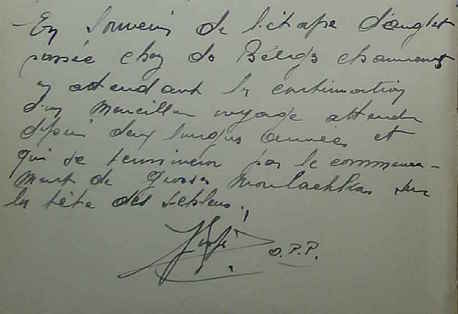 En souvenir de l'étape d'anglet
passée chez de Bélges charmants
en attendant la continuation
d'un merveilleux voyage attendu
depuis deux longues années et
qui se terminera par le commence-
ment de grosses moulachkas sur
la tête des schleus!
O.P.P.